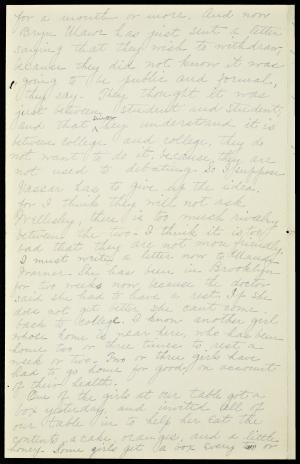 for a month or more. And now
Bryn Mawr has just sent a letter
saying that they wish to withdraw,
because they did not know it was
going to be public and formal,
they say. They thought it was
just between student and student,
and that since they understand it is
between college and college, they do
not want to do it, because they are
not used to debating. So I suppose
Vassar has to give up the idea.
for I think they will not ask
Wellesley, there is too much rivalry
between the two. I think it is too
bad that they are not more friendly.
I must write a letter now to Maude
Warner. She has been in Brooklyn
for two weeks now, because the doctor
said she had to have a rest. If she
does not get better she can't come
back to college. I know another girl
whose home is near here, who has been
home two or three times to rest a
week or two. Two or three girls have
had to go home for good, on account
of their health.
One of the girls at our table got a
box yesterday, and invited all of
our table in to help her eat the
contents, a cake, oranges, and a little
honey. Some girls get a box every or